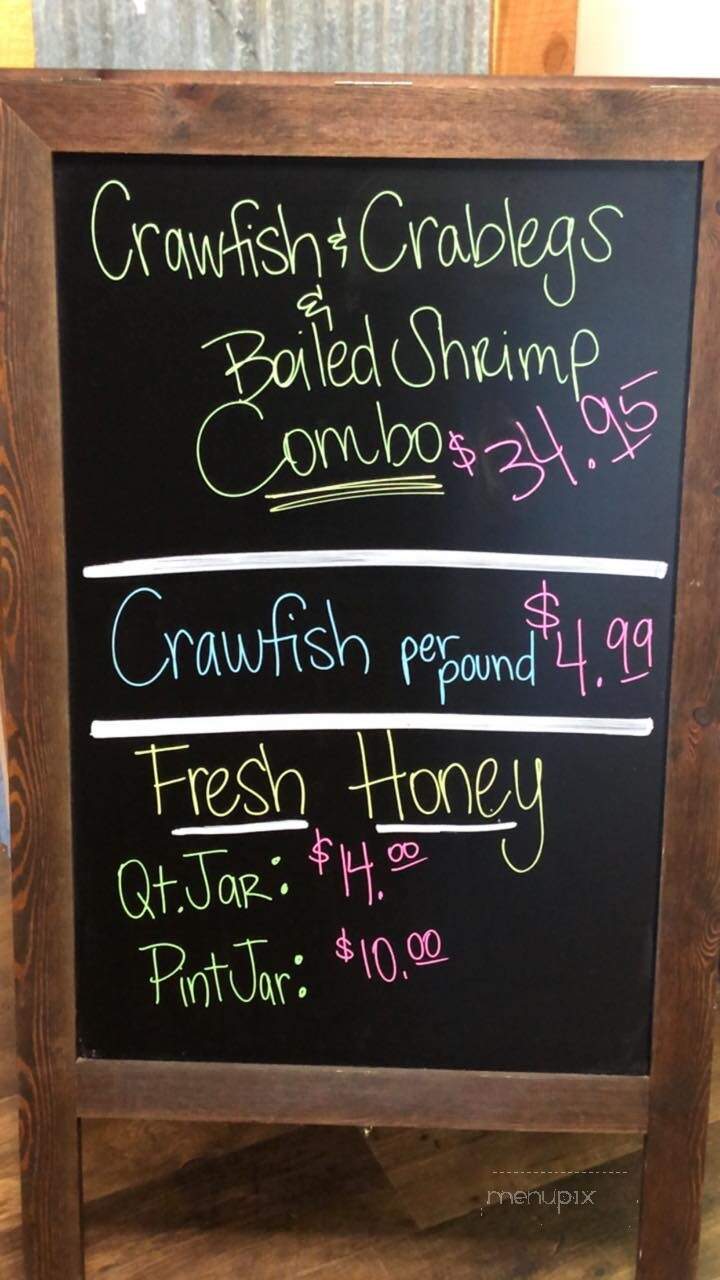 Crawfish & Crablegs
&
Boiled Shrimp
Combo $34.95
Crawfish per pound $4.99
Fresh Honey
Qt. Jar: $14.00
Pint Jar: $10.00
menupix